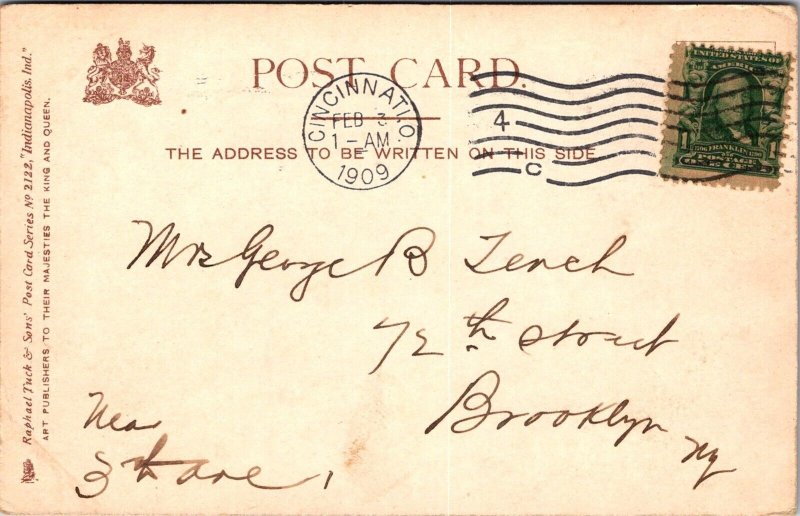 POST CARD.
CINCINNATI, O.
FEB 3
1 - AM
1909
4
C
UNITED STATES OF
AMERICA
1 FRANKLIN 1
POSTAGE
THE ADDRESS TO BE WRITTEN ON THIS SIDE
Raphael Tuck & Sons' Post Card Series No 2122, "Indianapolis. Ind."
ART PUBLISHERS TO THEIR MAJESTIES THE KING AND QUEEN.
Mrs George B Lench
72th Street
Brooklyn
Ny
Near
3th ave,